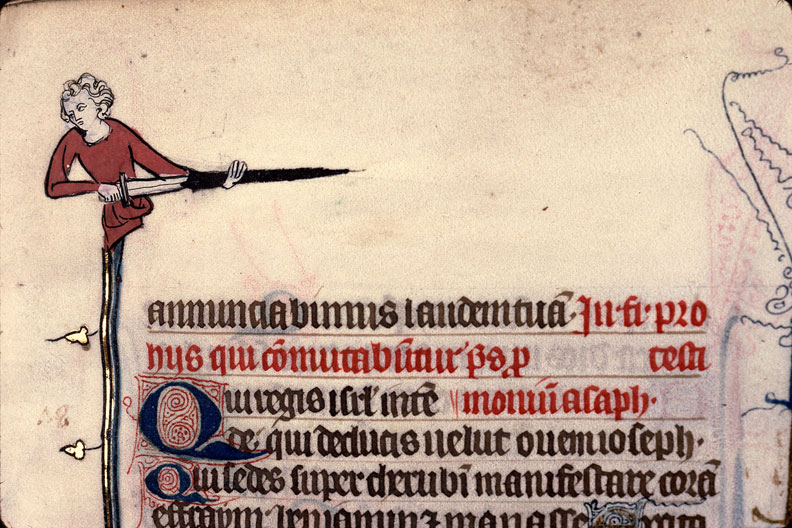 annunciabimus laudem tuā· In·fi· pro
hijs qui cōmutabūtur· p̄s p testi
Qui regis isrl̄ intē moniū asaph·
de· qui deducis uelut ouem ioseph·
Qui sedes super cherubī manifestare corā
effraym beniamin ⁊ manasse